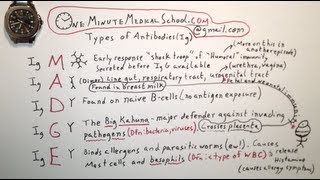 OneMinuteMedicalSchool.com
@gmail.com
Types of Antibodies (Ig)
(More on this in
another episode)
Ig M Early response "shock troop" of "Humoral" immunity
Secreted before Ig G available
(urethra, vagina)
Ig A (Dimer) Line gut, respiratory tract, urogenital tract
Found in breast milk
Ig D Found on naive B-cells (no antigen exposure)
Ig G The Big Kahuna - major defender against invading
pathogens (Dfn: bacteria, viruses). Crosses placenta
Ig E Binds allergens and parasitic worms (ew!). Causes
Mast cells and basophils (Dfn: type of WBC) release
Histamine
(causes allergy symptoms)